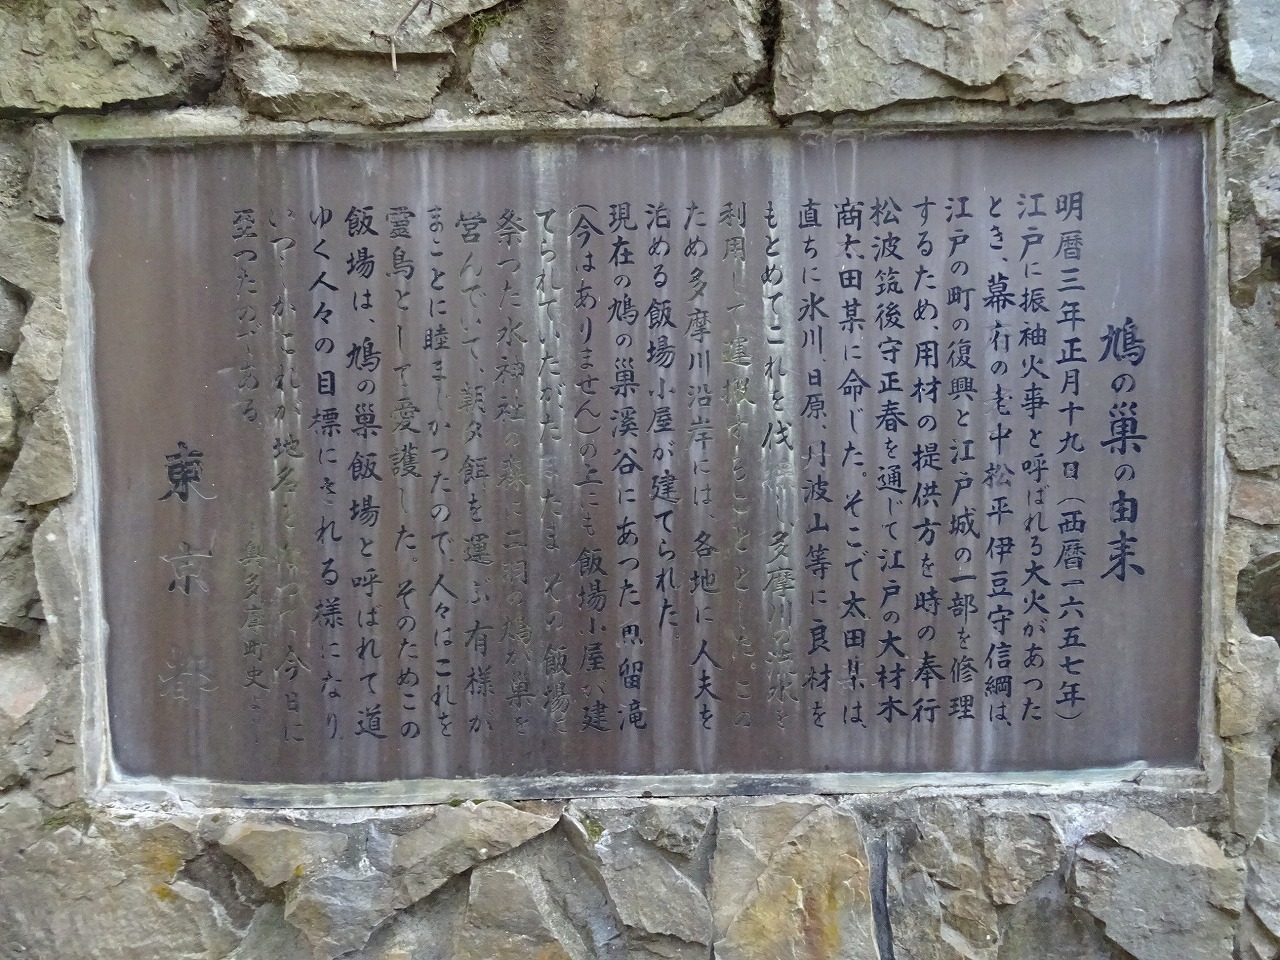 鳩の巣の由来
明暦三年正月十九日（西暦一六五七年）
江戸に振袖火事と呼ばれる大火があつた
とき、幕府の老中松平伊豆守信綱は、
江戸の町の復興と江戸城の一部を修理
するため、用材の提供方を時の奉行
松波筑後守正春を通じて江戸の大材木
商太田某に命じた。そこで太田某は、
直ちに氷川、日原、丹波山等に良材を
もとめてこれを伐採し、多摩川の流水を
利用して運搬することとした。この
ため多摩川沿岸には、各地に人夫を
泊める飯場小屋が建てられた。
現在の鳩の巣溪谷にあつた思留滝
（今はありません）の上にも飯場小屋が建
てられていたがたまたま、その飯場に
祭つた水神社の森に二羽の鳩が巣を
営んでいて、朝夕餌を運ぶ有様が
まことに睦まじかつたので、人々はこれを
霊鳥として愛護した。そのためこの
飯場は、鳩の巣飯場と呼ばれて道
ゆく人々の目標にされる様になり、
いつしかこれが地名となつて今日に
至つたのである。
奥多摩町史より
東京都